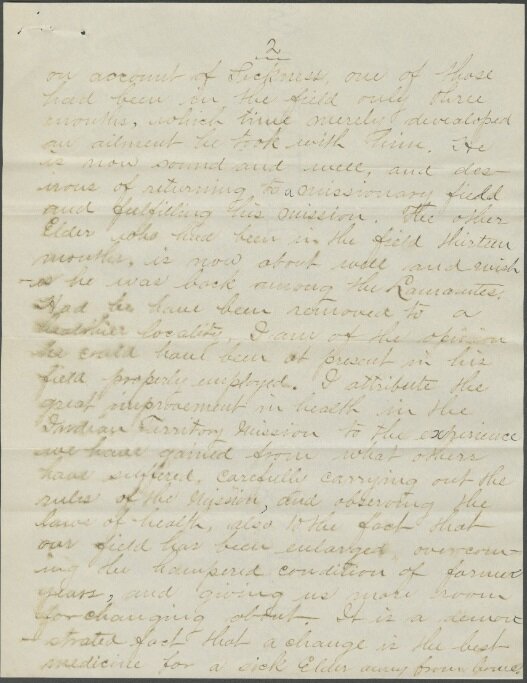 2
on account of Sickness, one of those
had been in the field only three
months, which time merely developed
an ailment he took with him. He
is now sound and well, and des-
irous of returning to a missionary field
and fulfilling his mission. The other
Elder who had been in the field thirteen
months, is now about well and wish
- s he was back among the Lamanites.
Had he have been removed to a
healthier locality, I am of the opinion
he could have been at present in his
field properly employed. I attribute the
great improvement in health in the
Indian Territory Mission to the experience
we have gained from what others
have suffered, carefully carrying out the
rules of the Mission, and observing the
laws of health, also to the fact that
our field has been enlarged, overcom-
ing the hampered condition of former
years, and giving us more room
for changing about. It is a demon
- strated fact that a change is the best
medicine for a sick Elder away from home,